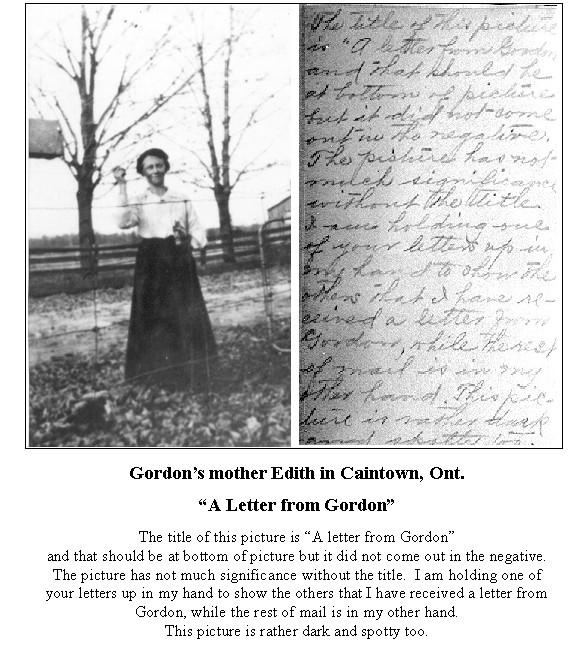 The title of this picture
is "A letter from Gordon
and that should be
at bottom of picture
but it did not come
out in the negative.
The picture has not
much significance
without the title.
I am holding one
of your letters up in
my hand to show the
others that I have re-
ceived a letter from
Gordon, while the rest
of mail is in my
other hand. This pic-
ture is rather dark
and spotty too.
Gordon's mother Edith in Caintown, Ont.
“A Letter from Gordon”
The title of this picture is “A letter from Gordon”
and that should be at bottom of picture but it did not come out in the negative.
The picture has not much significance without the title.  I am holding one of
your letters up in my hand to show the others that I have received a letter from
Gordon, while the rest of mail is in my other hand.
This picture is rather dark and spotty too.